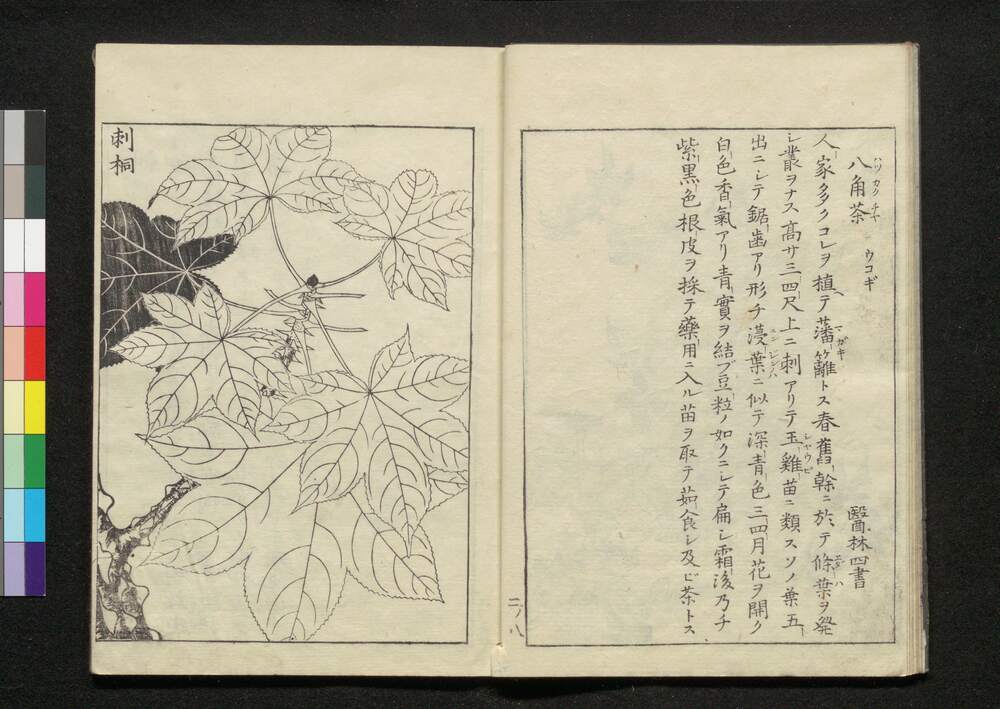 八角茶 ハツカクチヤ ウコギ 醫林四書
人家多クコレヲ植テ藩籬トス春舊幹ニ於テ條葉ヲ発
シ叢ヲナス高サ三四尺上ニ刺アリテ玉雞苗ニ類スソノ葉五
出ニシテ鋸歯アリ形チ蔓葉ニ似テ深青色三四月花ヲ開ク
白色香氣アリ青實ヲ結ブ豆粒ノ如クニシテ扁シ霜後乃チ
紫黒色根皮ヲ採テ藥用ニ入ル苗ヲ取テ茹食シ及ビ茶トス
二ノ八
刺桐